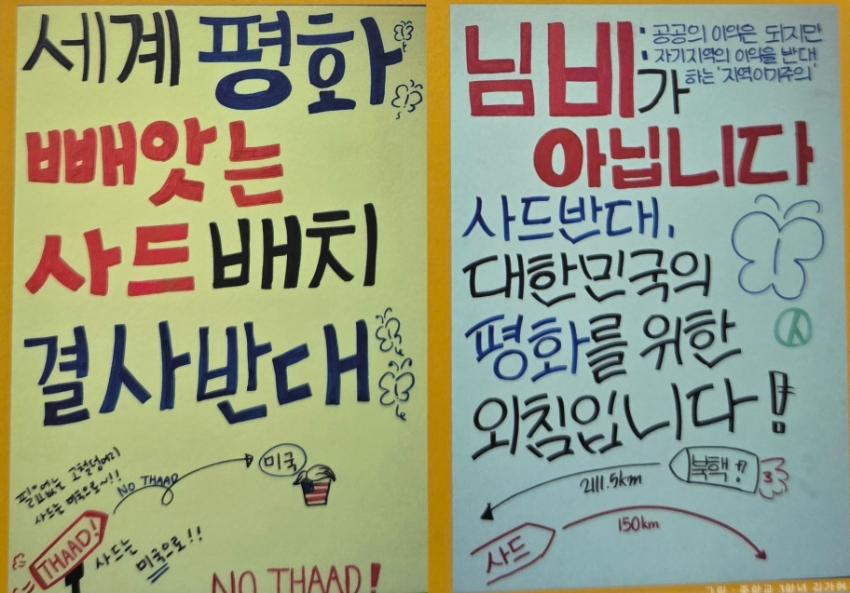 세계 평화
빼앗는
사드 배치
결사반대
필요없는 고철덩어리
사드는 미국으로!!
NO THAAD
미국
THAAD!
사드는 미국으로!!
NO THAAD!
님비가
: 공공의 이익은 되지만
: 자기지역의 이익을 반대
하는 '지역이기주의'
아닙니다
사드반대,
대한민국의
평화를 위한
외침입니다!
북핵!
2111.5km
150km
사드
3학년